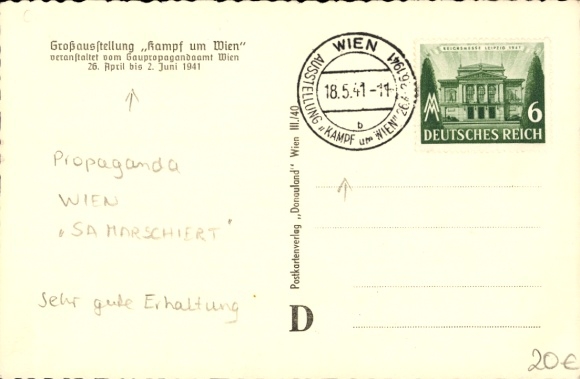 Großausstellung „Kampf um Wien"
veranstaltet vom Gaupropagandaamt Wien
26. April bis 2. Juni 1941
Propaganda
WIEN
„SA MARSCHIERT"
Sehr gute Erhaltung
Postkartenverlag „Donauland" Wien III./40
D
WIEN
18.5.41-11
b
AUSSTELLUNG „KAMPF um WIEN" 26.4-2.6.1941
REICHSMESSE LEIPZIG 1941
6
DEUTSCHES REICH
20€